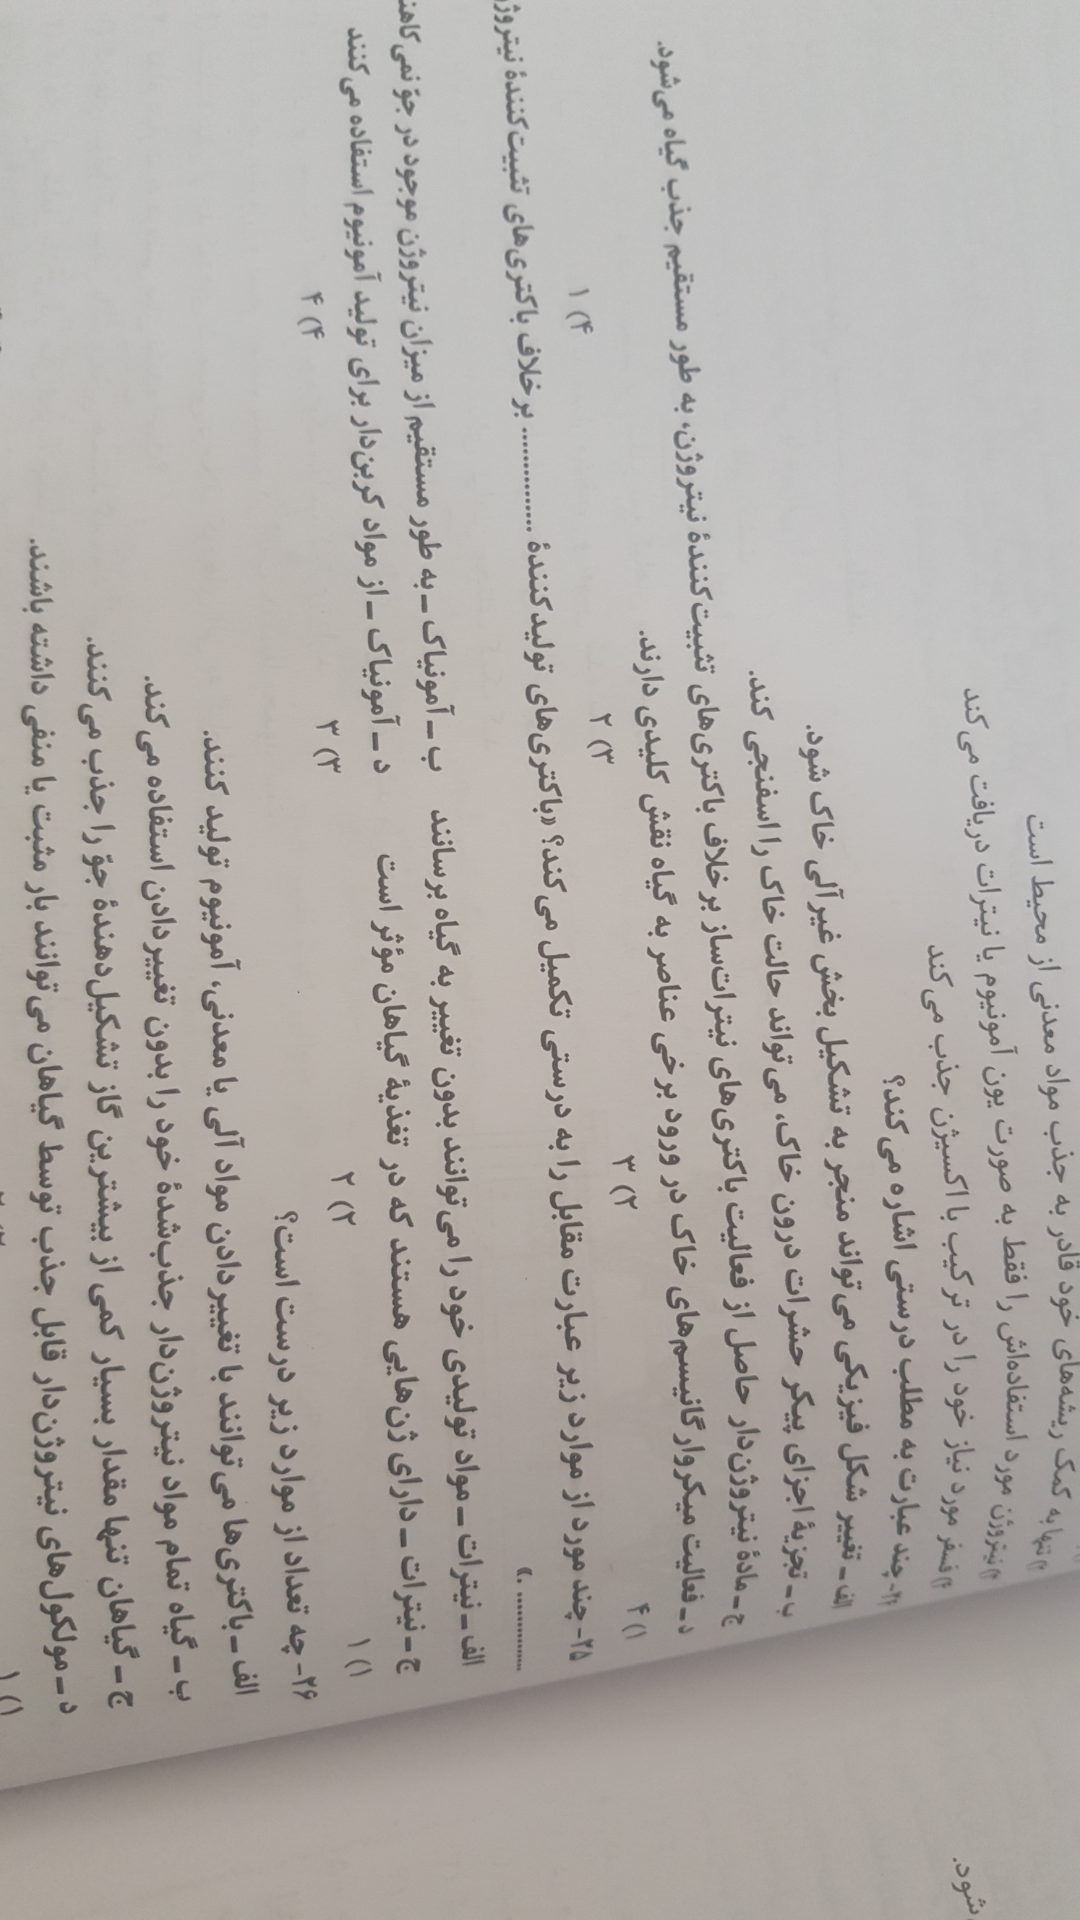 ۲) تنها به کمک ریشه‌های خود قادر به جذب مواد معدنی از محیط است
۳) نیتروژن مورد استفاده‌اش را فقط به صورت یون آمونیوم یا نیترات دریافت می‌کند
۴) فسفر مورد نیاز خود را در ترکیب با اکسیژن جذب می‌کند
۲۴- چند عبارت به مطلب درستی اشاره می‌کند؟
الف ـ تغییر شکل فیزیکی می‌تواند منجر به تشکیل بخش غیرآلی خاک شود.
ب ـ تجزیهٔ اجزای پیکر حشرات درون خاک، می‌تواند حالت خاک را اسفنجی کند.
ج ـ مادهٔ نیتروژن‌دار حاصل از فعالیت باکتری‌های نیترات‌ساز برخلاف باکتری‌های تثبیت‌کنندهٔ نیتروژن، به طور مستقیم جذب گیاه می‌شود.
د ـ فعالیت میکروارگانیسم‌های خاک در ورود برخی عناصر به گیاه نقش کلیدی دارند.
۱) ۴ ۲) ۳ ۳) ۲ ۴) ۱
۲۵- چند مورد از موارد زیر عبارت مقابل را به درستی تکمیل می‌کند؟ «باکتری‌های تولیدکنندهٔ .............. برخلاف باکتری‌های تثبیت‌کنندهٔ
.............. .»
الف ـ نیترات ـ مواد تولیدی خود را می‌توانند بدون تغییر به گیاه برسانند ب ـ آمونیاک ـ به طور مستقیم از میزان نیتروژن موجود در جوّ نمی‌کاهند
ج ـ نیترات ـ دارای ژن‌هایی هستند که در تغذیهٔ گیاهان مؤثر است د ـ آمونیاک ـ از مواد کربن‌دار برای تولید آمونیوم استفاده می‌کنند
۱) ۱ ۲) ۲ ۳) ۳ ۴) ۴
۲۶- چه تعداد از موارد زیر درست است؟
الف ـ باکتری‌ها می‌توانند با تغییر دادن مواد آلی یا معدنی، آمونیوم تولید کنند.
ب ـ گیاه تمام مواد نیتروژن‌دار جذب‌شدهٔ خود را بدون تغییر دادن استفاده می‌کند.
ج ـ گیاهان تنها مقدار بسیار کمی از بیشترین گاز تشکیل‌دهندهٔ جوّ را جذب می‌کنند.
د ـ مولکول‌های نیتروژن‌دار قابل جذب توسط گیاهان می‌توانند بار مثبت یا منفی داشته باشند.
۱) ۱
شود.